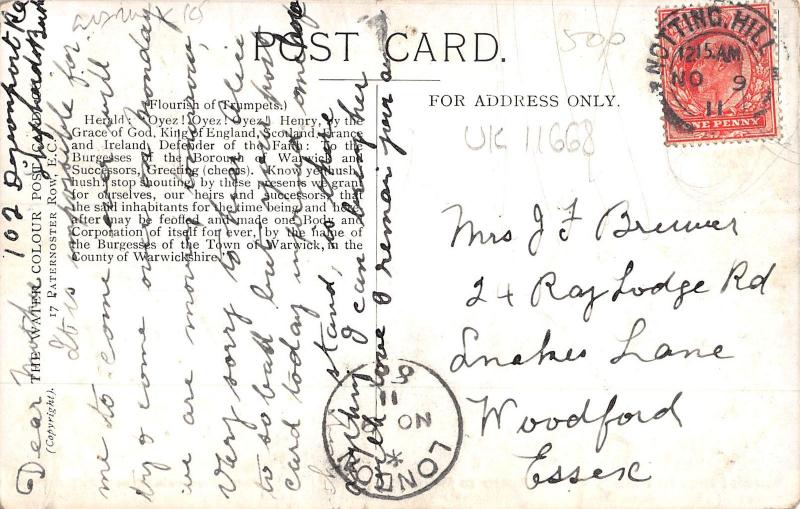 POST CARD.
FOR ADDRESS ONLY.
(Flourish of Trumpets.)
Herald: "Oyez! Oyez! Oyez! Henry, by the
Grace of God, King of England, Scotland, France
and Ireland, Defender of the Faith: To the
Burgesses of the Borough of Warwick and
Successors, Greeting (cheers). Know ye, hush,
hush, stop shouting, by these presents we grant
for ourselves, our heirs and successors, that
the said inhabitants for the time being and here-
after may be feoffed and made one Body and
Corporation of itself for ever, by the name of
the Burgesses of the Town of Warwick, in the
County of Warwickshire."
THE WATER COLOUR POST CARD
17 PATERNOSTER ROW, E.C.
(Copyright).
102 Davenport Rd
Dear
It is impossible for
me to come over will
try & come on Monday
we are moving tomorrow,
Very sorry to hear Alice
is so bad but your post
card today more
stand, so hope
I can decipher
with love I remain your
NOTTING HILL
12 15 AM
NO 9
11
ONE PENNY
LONDON
NO 9
11
500
UK 11668
Mrs J F Brewer
24 Ray Lodge Rd
Snakes Lane
Woodford
Essex